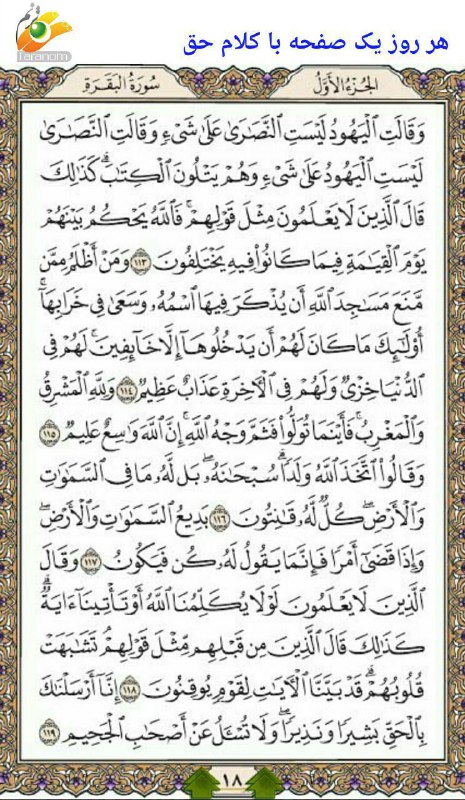 faranom
هر روز یک صفحه با کلام حق
الجُزءُ الأَوَّلُ
سُورَةُ البَقَرَةِ
وَقَالَتِ ٱلْيَهُودُ لَيْسَتِ ٱلنَّصَٰرَىٰ عَلَىٰ شَىْءٍ وَقَالَتِ ٱلنَّصَٰرَىٰ
لَيْسَتِ ٱلْيَهُودُ عَلَىٰ شَىْءٍ وَهُمْ يَتْلُونَ ٱلْكِتَٰبَ ۗ كَذَٰلِكَ
قَالَ ٱلَّذِينَ لَا يَعْلَمُونَ مِثْلَ قَوْلِهِمْ ۚ فَٱللَّهُ يَحْكُمُ بَيْنَهُمْ
يَوْمَ ٱلْقِيَٰمَةِ فِيمَا كَانُوا۟ فِيهِ يَخْتَلِفُونَ ١١٣ وَمَنْ أَظْلَمُ مِمَّن
مَّنَعَ مَسَٰجِدَ ٱللَّهِ أَن يُذْكَرَ فِيهَا ٱسْمُهُۥ وَسَعَىٰ فِى خَرَابِهَآ ۚ
أُو۟لَٰٓئِكَ مَا كَانَ لَهُمْ أَن يَدْخُلُوهَآ إِلَّا خَآئِفِينَ ۚ لَهُمْ فِى
ٱلدُّنْيَا خِزْىٌ وَلَهُمْ فِى ٱلْءَاخِرَةِ عَذَابٌ عَظِيمٌ ١١٤ وَلِلَّهِ ٱلْمَشْرِقُ
وَٱلْمَغْرِبُ ۚ فَأَيْنَمَا تُوَلُّوا۟ فَثَمَّ وَجْهُ ٱللَّهِ ۚ إِنَّ ٱللَّهَ وَٰسِعٌ عَلِيمٌ ١١٥
وَقَالُوا۟ ٱتَّخَذَ ٱللَّهُ وَلَدًا ۗ سُبْحَٰنَهُۥ ۖ بَل لَّهُۥ مَا فِى ٱلسَّمَٰوَٰتِ
وَٱلْأَرْضِ ۖ كُلٌّ لَّهُۥ قَٰنِتُونَ ١١٦ بَدِيعُ ٱلسَّمَٰوَٰتِ وَٱلْأَرْضِ ۖ
وَإِذَا قَضَىٰٓ أَمْرًا فَإِنَّمَا يَقُولُ لَهُۥ كُن فَيَكُونُ ١١٧ وَقَالَ
ٱلَّذِينَ لَا يَعْلَمُونَ لَوْلَا يُكَلِّمُنَا ٱللَّهُ أَوْ تَأْتِينَآ ءَايَةٌ ۗ
كَذَٰلِكَ قَالَ ٱلَّذِينَ مِن قَبْلِهِم مِّثْلَ قَوْلِهِمْ ۘ تَشَٰبَهَتْ
قُلُوبُهُمْ ۗ قَدْ بَيَّنَّا ٱلْءَايَٰتِ لِقَوْمٍ يُوقِنُونَ ١١٨ إِنَّآ أَرْسَلْنَٰكَ
بِٱلْحَقِّ بَشِيرًا وَنَذِيرًا ۖ وَلَا تُسْـَٔلُ عَنْ أَصْحَٰبِ ٱلْجَحِيمِ ١١٩
١٨